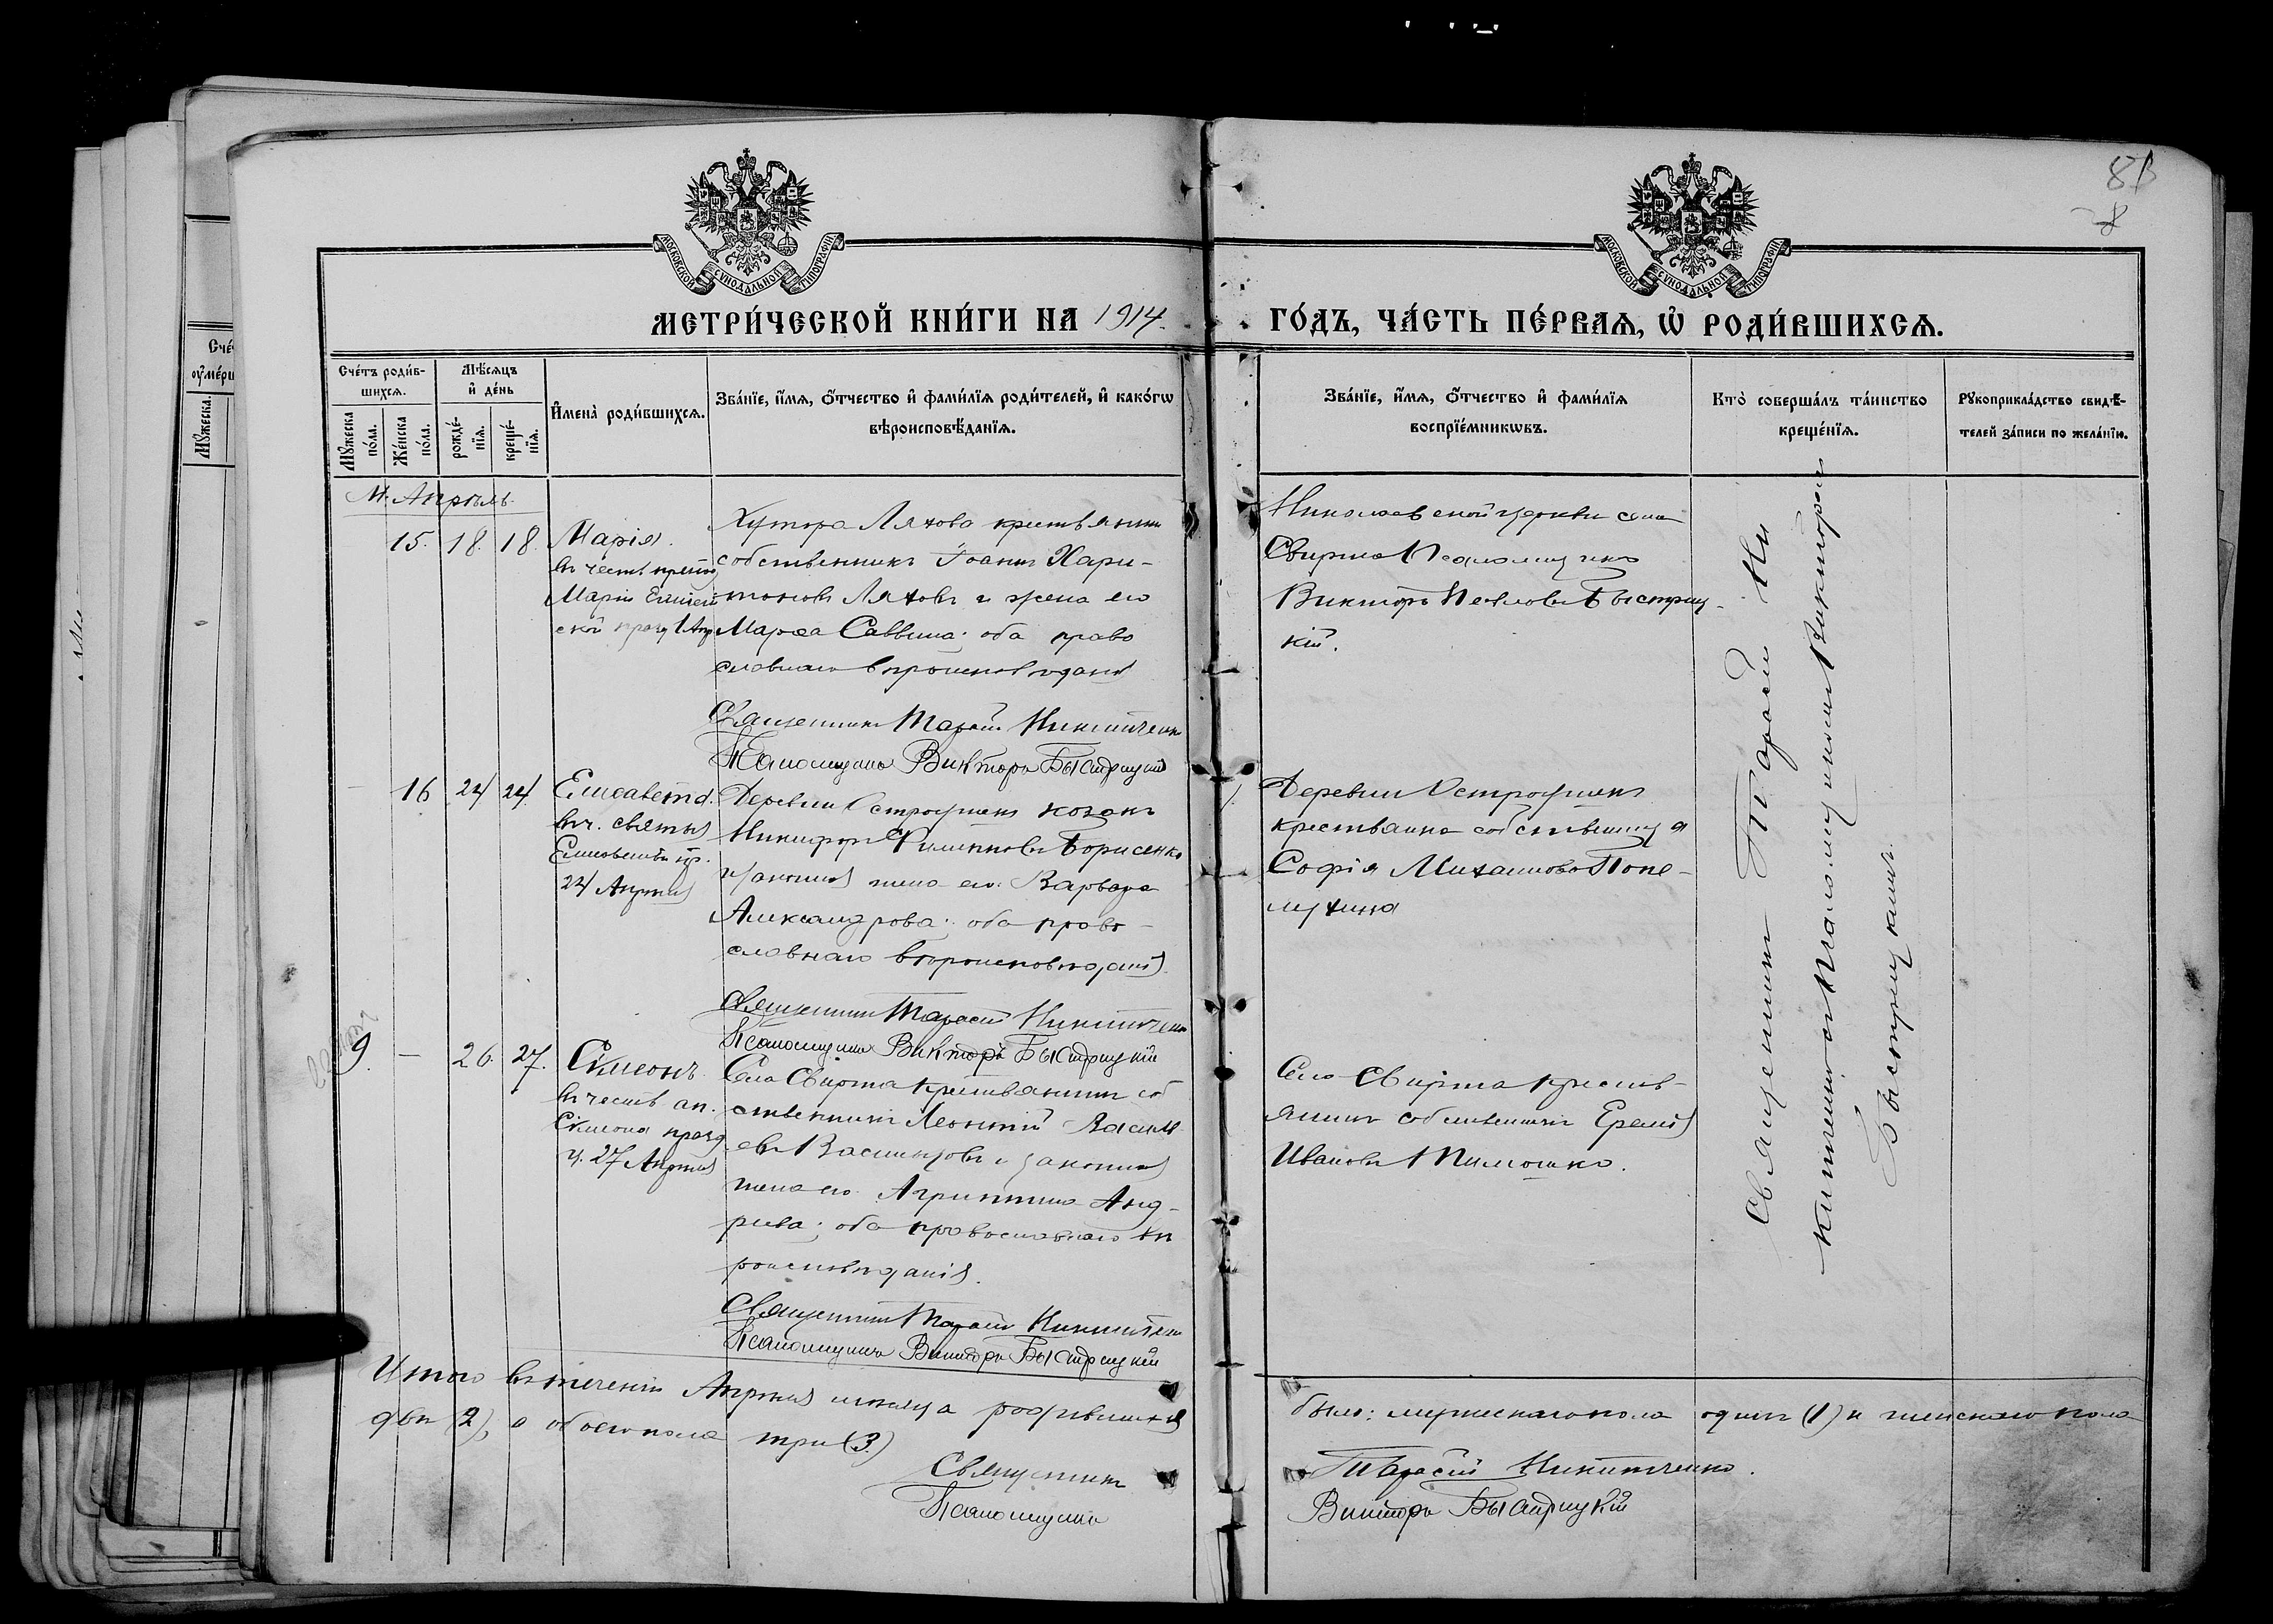 81
8
МОСКОВСКОЙ СѴНОДАЛЬНОЙ ТИПОГРАФІИ.
МОСКОВСКОЙ СѴНОДАЛЬНОЙ ТИПОГРАФІИ.
МЕТРИ́ЧЕСКОЙ КНИ́ГИ НА 1914 ГО́ДЪ, ЧА́СТЬ ПЕ́РВАѦ, Ѡ҆ РОДИ́ВШИХСѦ.
Сче́тъ роди́в-
шихсѧ.
Мѣ́сѧцъ
и҆ де́нь
Мꙋ́жеска по́ла.
Же́нска по́ла.
рожде́-
нїѧ.
креще́-
нїѧ.
И҆мена̀ роди́вшихсѧ.
Зва́нїе, и҆́мѧ, ѻ҆́тчество и҆ фами́лїѧ роди́телей, и҆ како́гѡ
вѣроисповѣ́данїѧ.
Зва́нїе, и҆́мѧ, ѻ҆́тчество и҆ фами́лїѧ
воспрїе́мникѡвъ.
Кто̀ соверша́лъ та́инство
креще́нїѧ.
Рꙋкоприкла́дство свидѣ́-
телей за́писи по жела́нїю.
М. Апрѣль.
15. 18. 18.
Марія.
въ честь препод
Маріи Египет
ской празд 1 Апр
Хутора Ляхова крестьянинъ
собственникъ Іоаннъ Хари-
тоновъ Ляховъ и жена его
Марѳа Саввина; оба право
славнаго вѣроисповѣданія
Священникъ Тарасій Никитченко
Псаломщикъ Викторъ Быстрицкій
Николаевской церкви села
Свирма Псаломщикъ
Викторъ Павловъ Быстриц-
кій.
16 24 24.
Елисавета.
въ ч. святыя
Елисаветы пр.
24 Апрѣля
Деревни Остроушекъ козакъ
Никифоръ Филипповъ Борисенко
и законная жена его Варвара
Александрова; оба право-
славнаго вѣроисповѣданія.
Священникъ Тарасій Никитченко
Псаломщикъ Викторъ Быстрицкій
Деревни Остроушекъ
крестьянка собственница
Софія Михаилова Попе-
лухина
9. — 26. 27.
Сѵмеонъ
въ честь ап.
Сѵмеона празд
ч. 27 Апрѣля
Села Свирма крестьянинъ соб
ственникъ Леонтій Василь
евъ и законная
жена его Агриппина Анд-
реева; оба православнаго вѣ
роисповѣданія.
Священникъ Тарасій Никитченко
Псаломщикъ Викторъ Быстрицкій
Села Свирма кресть-
янинъ собственникъ Еремія
Ивановъ Тимошко.
Священникъ Тарасій Ни
китченко съ Псаломщикомъ Викторомъ
Быстрицкимъ.
Итого въ теченіи Апрѣля мѣсяца родившихся было: мужескаго пола одинъ (1) и женскаго пола
двѣ (2), а обоего пола три (3)
Священникъ Тарасій Никитченко.
Псаломщикъ Викторъ Быстрицкій
Сче́
ᲂу҆ме́рш
Мꙋ́жеска.